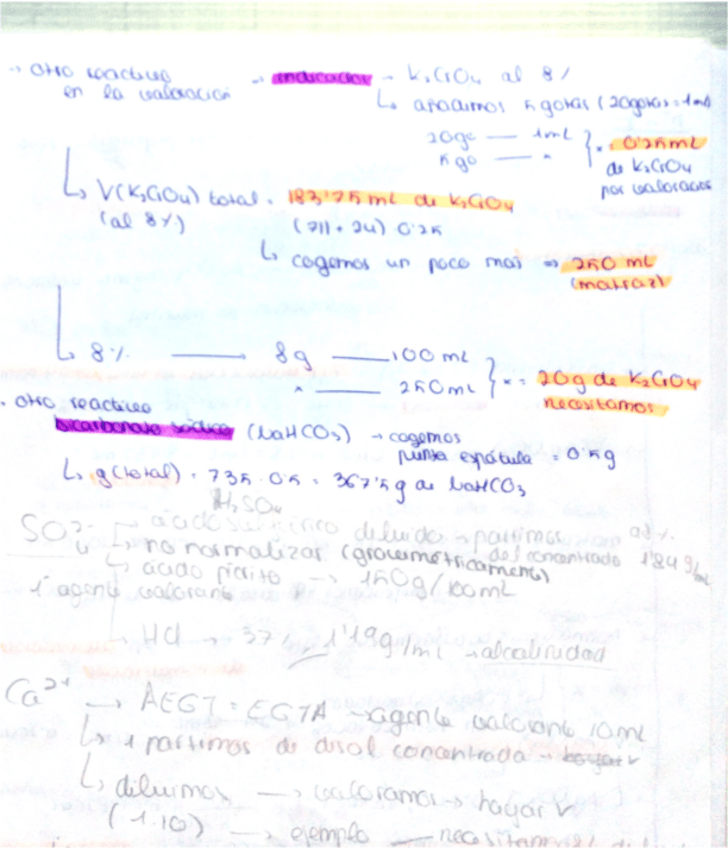 → otro reactivo → indicador → K₂CrO₄ al 8%
en la valoración ↳ añadimos 5 gotas (20 gotas = 1ml)
20 go — 1mL } x = 0'25 mL
5 go — x de K₂CrO₄
por valoración
↳ V(K₂CrO₄) total = 183'75 mL de K₂CrO₄
(al 8%) (711 + 24) 0'25
↳ cogemos un poco más ⇒ 250 mL
(matraz)
↳ 8% — 8g — 100 mL } x = 20g de K₂CrO₄
x — 250 mL necesitamos
• otro reactivo
bicarbonato sódico (NaHCO₃) → cogemos
punta espátula = 0'5g
↳ g(total) = 735 · 0'5 = 367'5g de NaHCO₃
H₂SO₄
SO₄²⁻ → ácido sulfúrico diluido → partimos
↳ no normalizar (gravimétricamente) del concentrado 1'84 g/mL
↳ ácido pícrico → 150g/100mL
1º agente valorante
→ HCl → 37% 1'19g/ml → alcalinidad
Ca²⁺ → AEGT = EGTA → agente valorante 10mL
↳ partimos de disol concentrada →
↳ diluimos → valoramos → hayar V
(1:10) → ejemplo — necesitamos